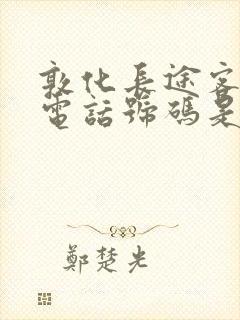 敦化長途客
電話號碼是
鄭楚光